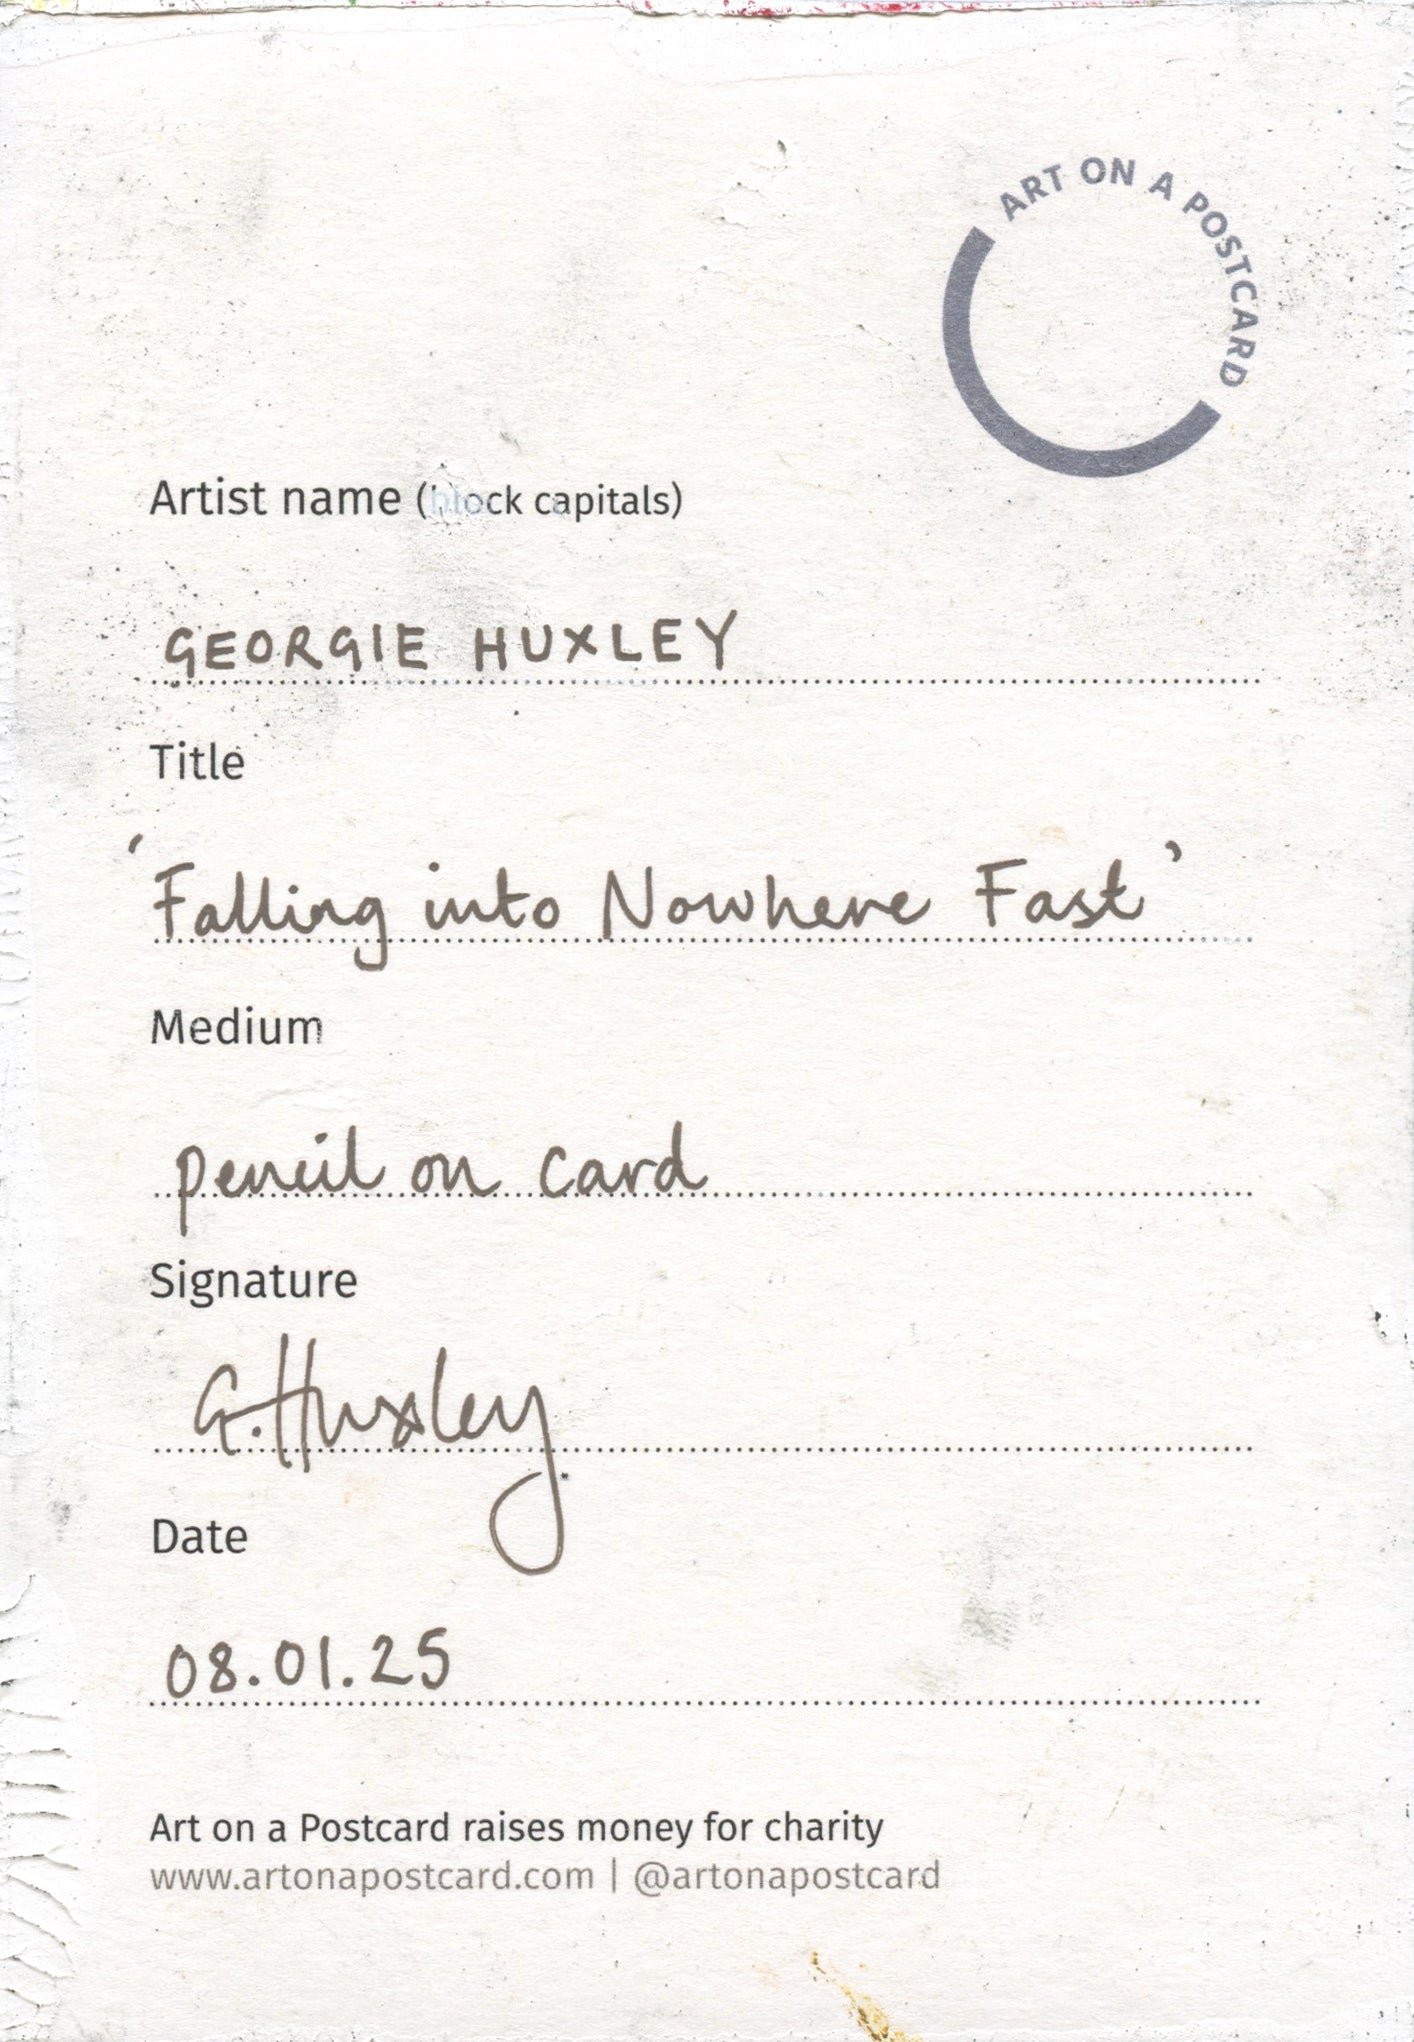 ART ON A POSTCARD
Artist name (block capitals)
GEORGIE HUXLEY
Title
'Falling into Nowhere Fast'
Medium
pencil on card
Signature
G.Huxley
Date
08.01.25
Art on a Postcard raises money for charity
www.artonapostcard.com | @artonapostcard